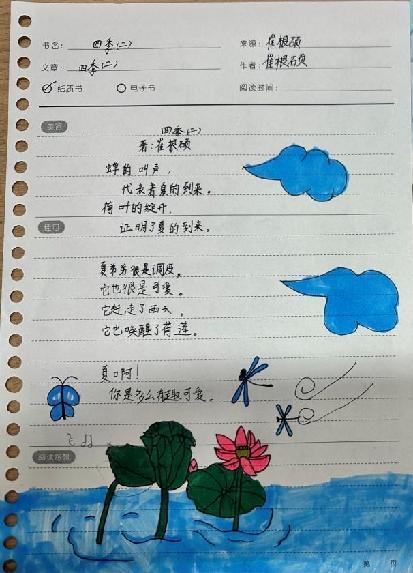 书名: 四季(二) 来源: 崔根硕
文章: 四季(二) 作者: 崔根硕
纸质书 电子书 阅读时间:
四季(二)
著:崔根硕
蝉的叫声,
代表着夏的到来。
荷叶的绽开,
佳句
证明了夏的到来。
夏季另很是调皮。
它也很是可爱。
它赶走了雨天,
它也唤醒了荷莲。
夏啊!
你是多么有趣可爱。
阅读感想
第 页